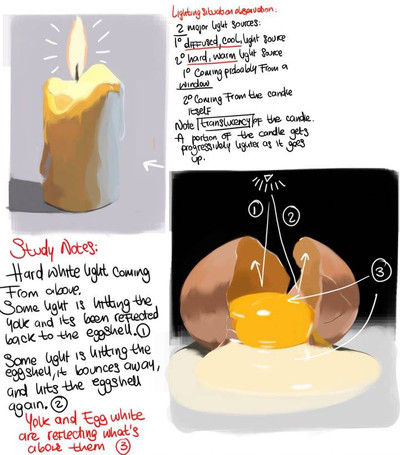 Lighting situation observation:
2 major light sources:
1° diffused, cool, light source
2° hard, warm light source
1° Coming probably from a
window
2° Coming from the candle
itself
Note translucency of the candle.
A portion of the candle gets
progressively lighter as it goes
up.
Study Notes:
Hard white light coming
from above.
Some light is hitting the
yolk and its been reflected
back to the eggshell. 1
Some light is hitting the
eggshell, it bounces away,
and hits the eggshell
again. 2
Yolk and Egg white
are reflecting what's
above them 3
1
2
3